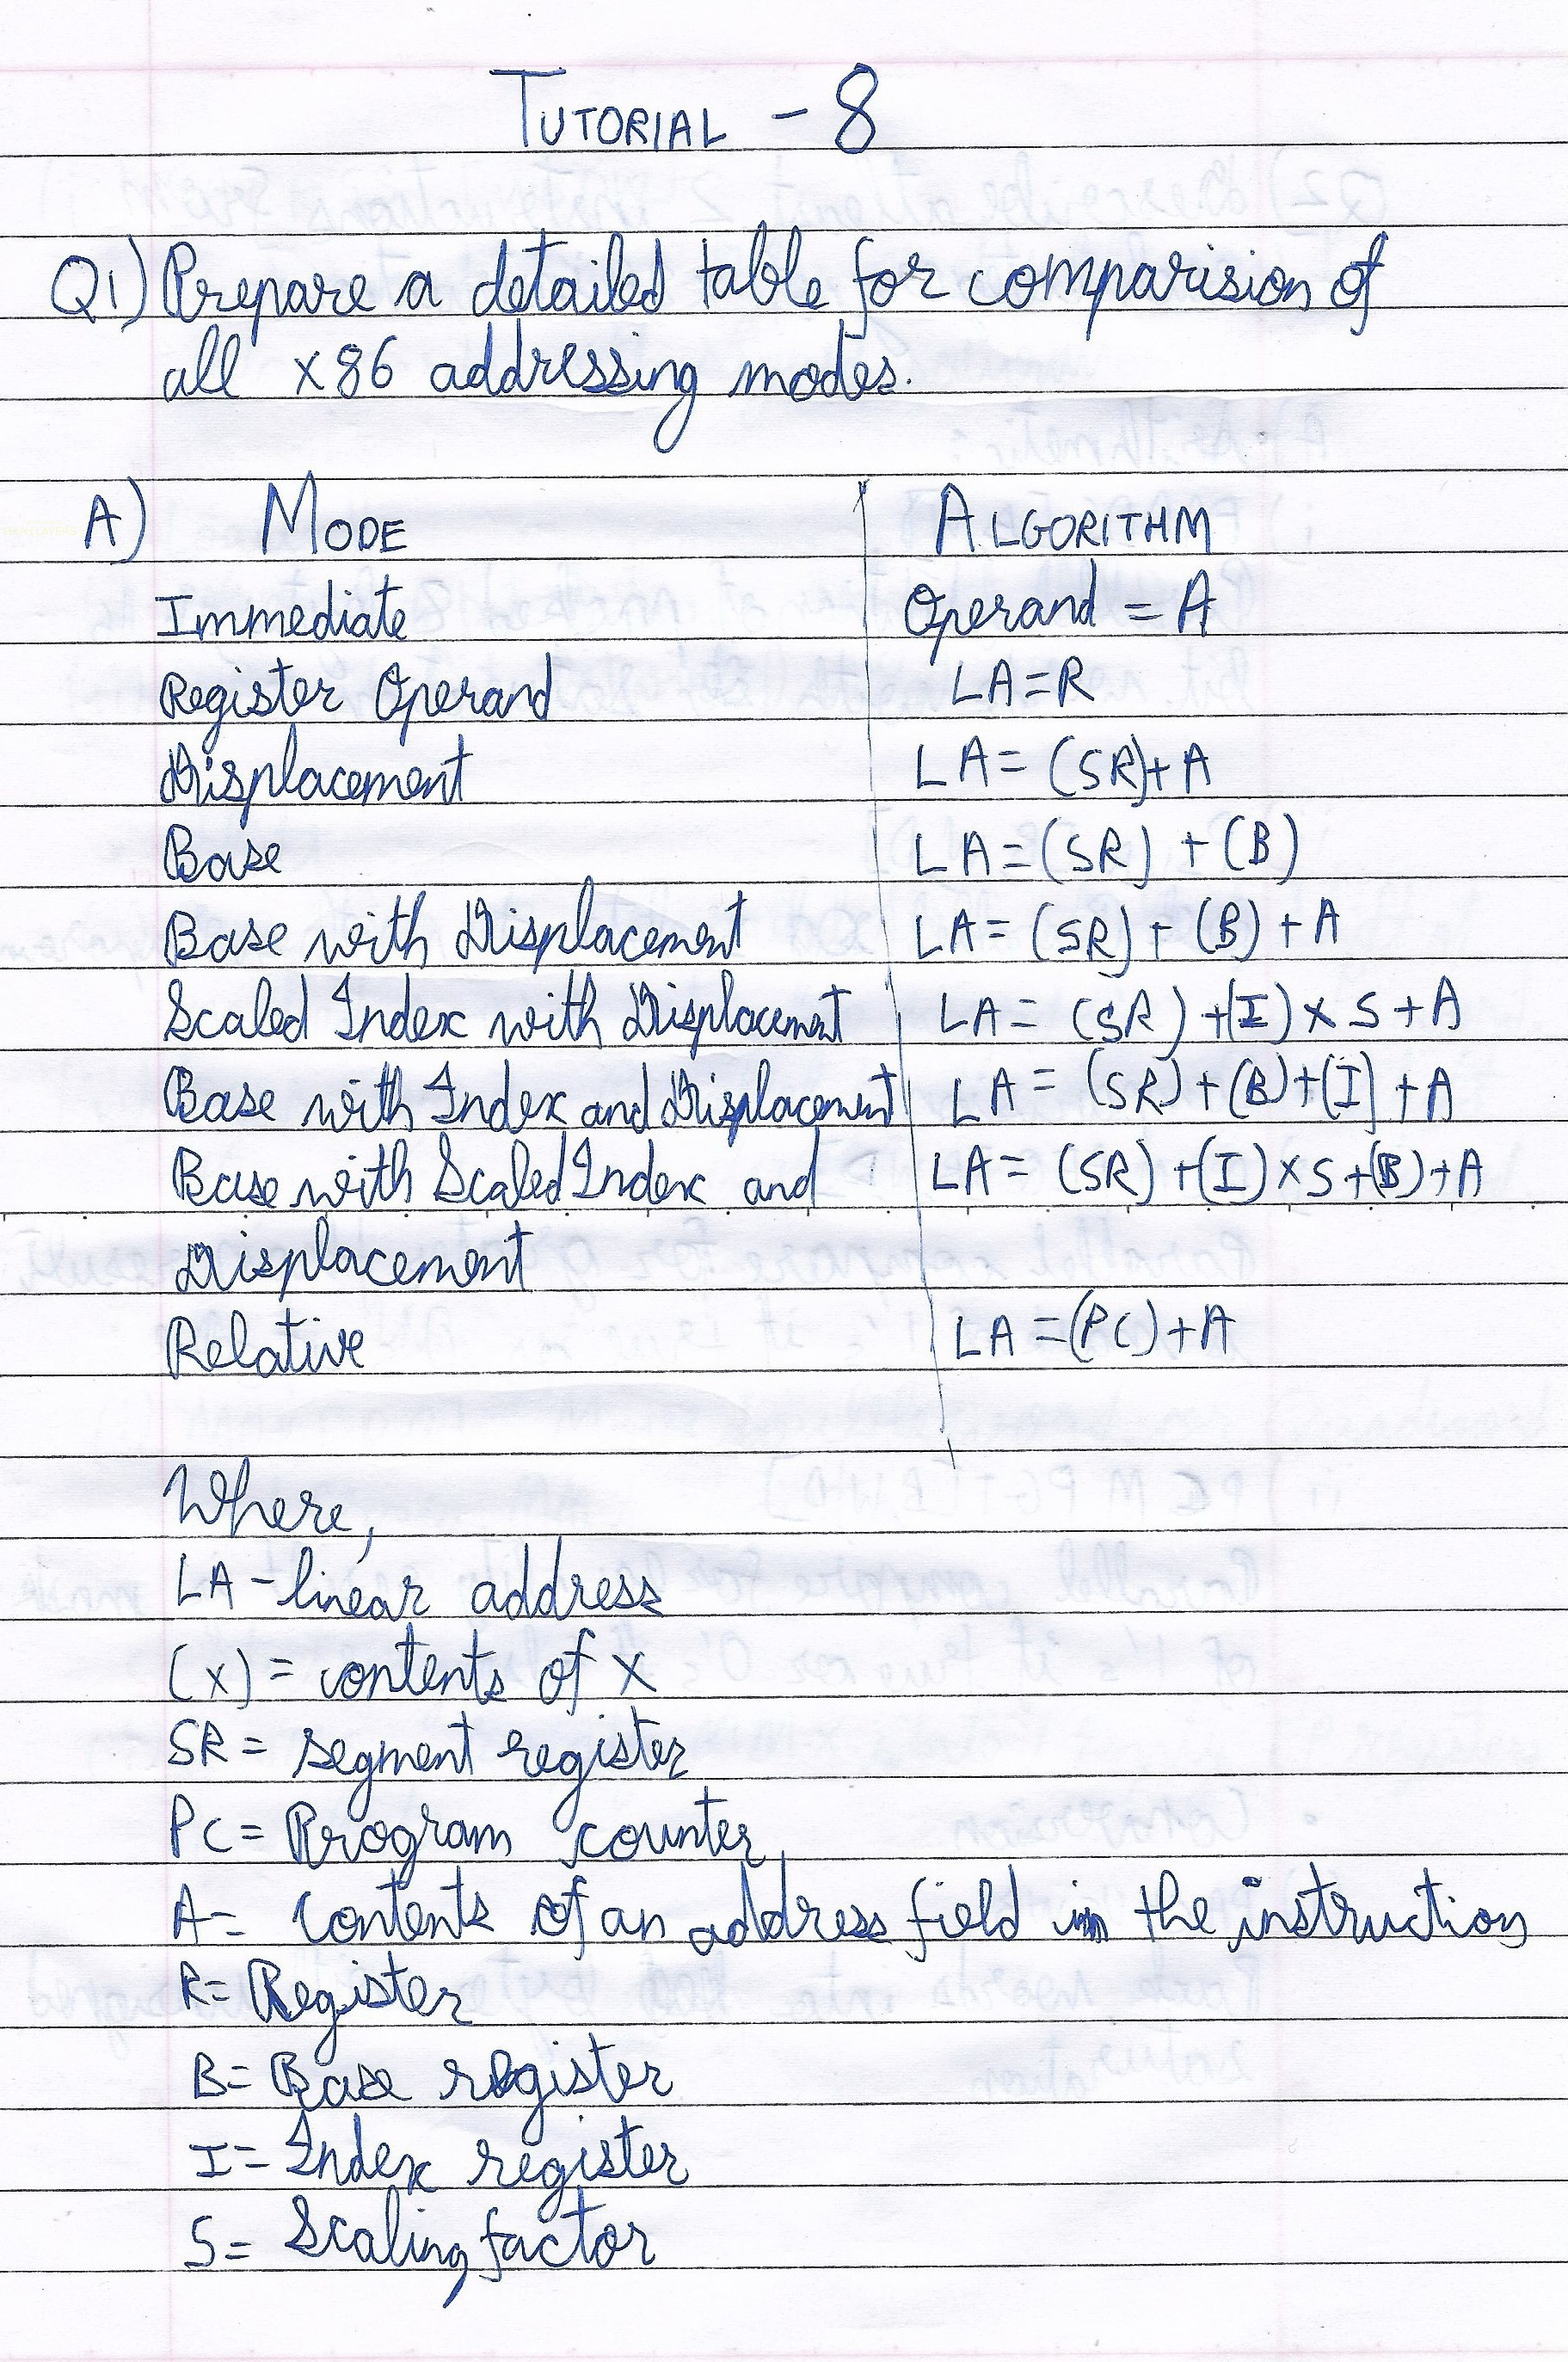 TUTORIAL - 8
Q1) Prepare a detailed table for comparision of
all x86 addressing modes.
A) MODE ALGORITHM
Immediate Operand = A
Register Operand LA=R
Displacement LA= (SR)+A
Base LA=(SR) + (B)
Base with Displacement LA= (SR) + (B) + A
Scaled Index with Displacement LA= (SR) +(I) x S + A
Base with Index and Displacement LA = (SR)+(B)+(I) + A
Base with Scaled Index and LA= (SR) +(I)xS+(B)+A
Displacement
Relative LA =(PC)+A
Where,
LA - linear address
(x) = contents of x
SR = segment register
PC = Program counter
A= contents of an address field in the instruction
R= Register
B= Base register
I= Index register
S= Scaling factor